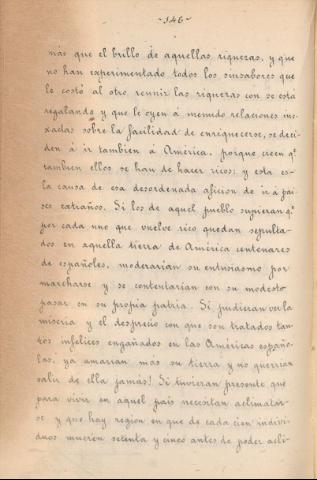 -146-
nás que el brillo de aquellas riquezas, y que
no han experimentado todos los sinsabores que
le costó al otro reunir las riquezas con se está
regalando y que le oyen á menudo relaciones
sobre la facilidad de enriquecerse, se deci-
den á ir tambien á América, porque creen q.e
tambien ellos se han de hacer ricos: y esta es
la causa de esa desordenada aficion de ir á pai-
ses extraños. Si los de aquel pueblo supieran q.e
por cada uno que vuelve rico quedan sepulta-
dos en aquella tierra de América centenares
de españoles, moderarían su entusiasmo por
marcharse y se contentarían con su modesto
pasar en su propia patria. Si pudieran ver la
miseria y el desprecio con que son tratados tan-
tos infelices engañados en las Américas españo-
las, ya amarían más su tierra y no querrían
salir de ella jamas! Si tuvieran presente que
para vivir en aquel país necesitan aclimatár-
se y que hay region en que de cada cien indivi-
duos mueren setenta y cinco antes de poder acli-